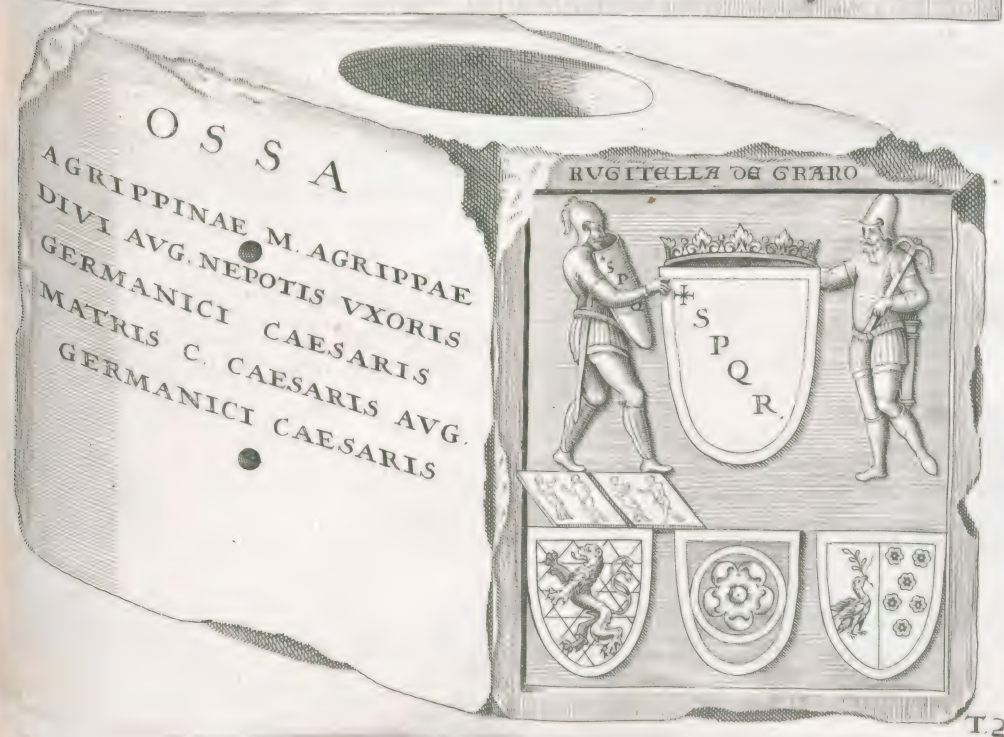 OSSA
AGRIPPINAE M. AGRIPPAE
DIVI AVG. NEPOTIS VXORIS
GERMANICI CAESARIS
MATRIS C. CAESARIS AVG.
GERMANICI CAESARIS
RVGITELLA DE GRANO
S P
S
P
Q
R.
T.2